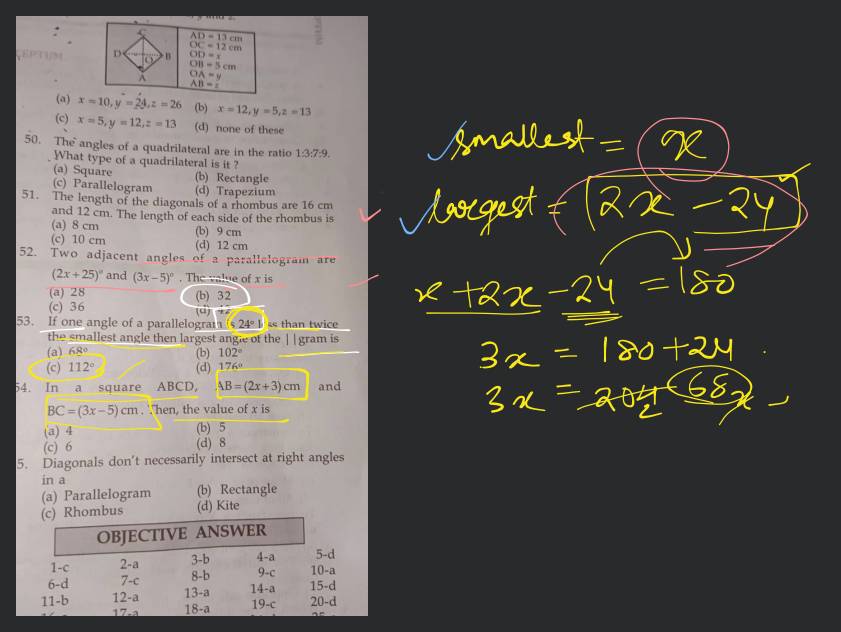 AD = 13 cm
OC = 12 cm
OD = x
OB = 5 cm
OA = y
AB = z
C
D
O
B
A
(a) x = 10, y = 24, z = 26 (b) x = 12, y = 5, z = 13
(c) x = 5, y = 12, z = 13 (d) none of these
50. The angles of a quadrilateral are in the ratio 1:3:7:9.
What type of a quadrilateral is it ?
(a) Square (b) Rectangle
(c) Parallelogram (d) Trapezium
51. The length of the diagonals of a rhombus are 16 cm
and 12 cm. The length of each side of the rhombus is
(a) 8 cm (b) 9 cm
(c) 10 cm (d) 12 cm
52. Two adjacent angles of a parallelogram are
(2x+25)° and (3x−5)°. The value of x is
(a) 28 (b) 32
(c) 36 (d) 42
53. If one angle of a parallelogram is 24° less than twice
the smallest angle then largest angle of the ||gram is
(a) 68° (b) 102°
(c) 112° (d) 176°
54. In a square ABCD, AB = (2x+3) cm and
BC = (3x−5) cm. Then, the value of x is
(a) 4 (b) 5
(c) 6 (d) 8
5. Diagonals don't necessarily intersect at right angles
in a
(a) Parallelogram (b) Rectangle
(c) Rhombus (d) Kite
OBJECTIVE ANSWER
1-c 2-a 3-b 4-a 5-d
6-d 7-c 8-b 9-c 10-a
11-b 12-a 13-a 14-a 15-d
17-a 18-a 19-c 20-d
smallest = x
largest = 2x − 24
x + 2x − 24 = 180
3x = 180 + 24
3x = 204 68